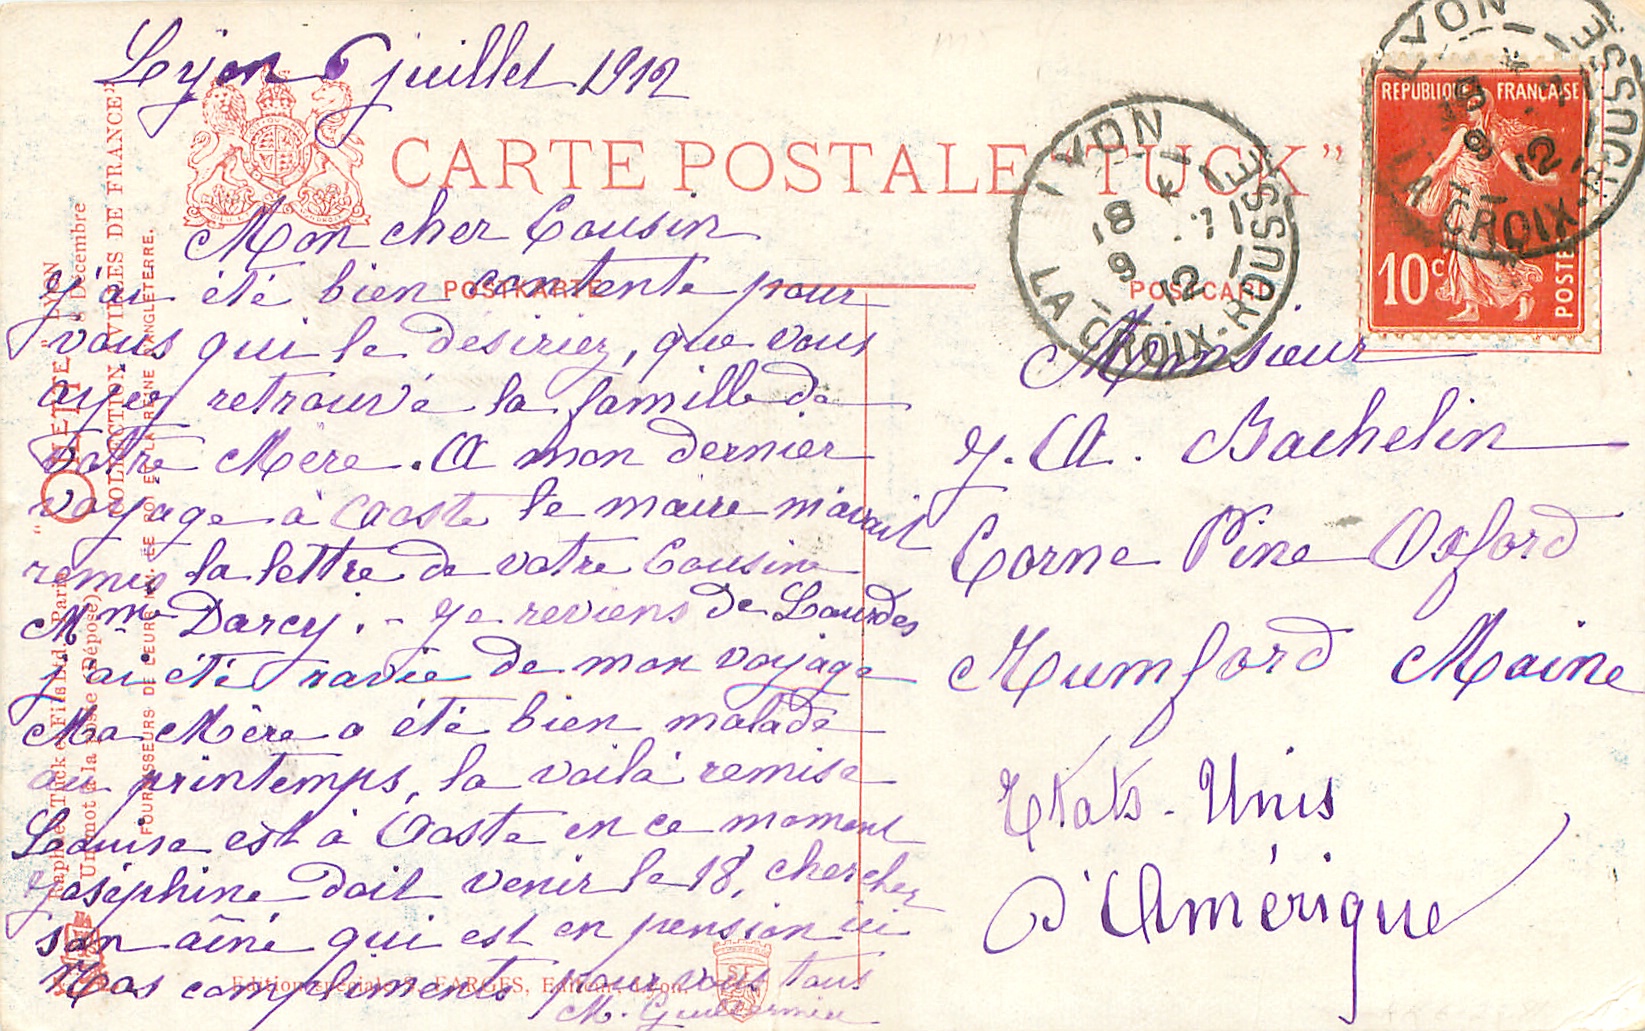 Lyon 6 juillet 1912
CARTE POSTALE "TUCK"
POSTKARTE
POST CARD
Mon cher Cousin
J'ai été bien contente pour
vous qui le désiriez, que vous
ayez retrouvé la famille de
votre Mère. A mon dernier
voyage à Aoste le maire m'avait
remis la lettre de votre Cousine
Mme Darcy. - Je reviens de Lourdes
j'ai été ravie de mon voyage
Ma Mère a été bien malade
au printemps, la voilà remise
Louise est à Aoste en ce moment
Joséphine doit venir le 18, chercher
son aîné qui est en pension ici
Nos compliments pour vous tous
M. Guillermin
Monsieur
J. A. Bachelin
Corne Pine Oxford
Rumford Maine
Etats-Unis
d'Amérique
LYON
18 *
9 .7 12
LA CROIX-ROUSSE
LYON
18 *
9 .7 12
LA CROIX-ROUSSE
REPUBLIQUE FRANÇAISE
10c
POSTES
"OILETTE" LYON
COLLECTION "VILLES DE FRANCE"
Décembre
Raphael Tuck & Fils Ltd. Paris
(Un mot à la poste Déposé).
FOURNISSEURS DE LEURS M.M. LE ROI ET LA REINE D'ANGLETERRE.
Edition spéciale S. FARGES, Editeur, Lyon.
S F